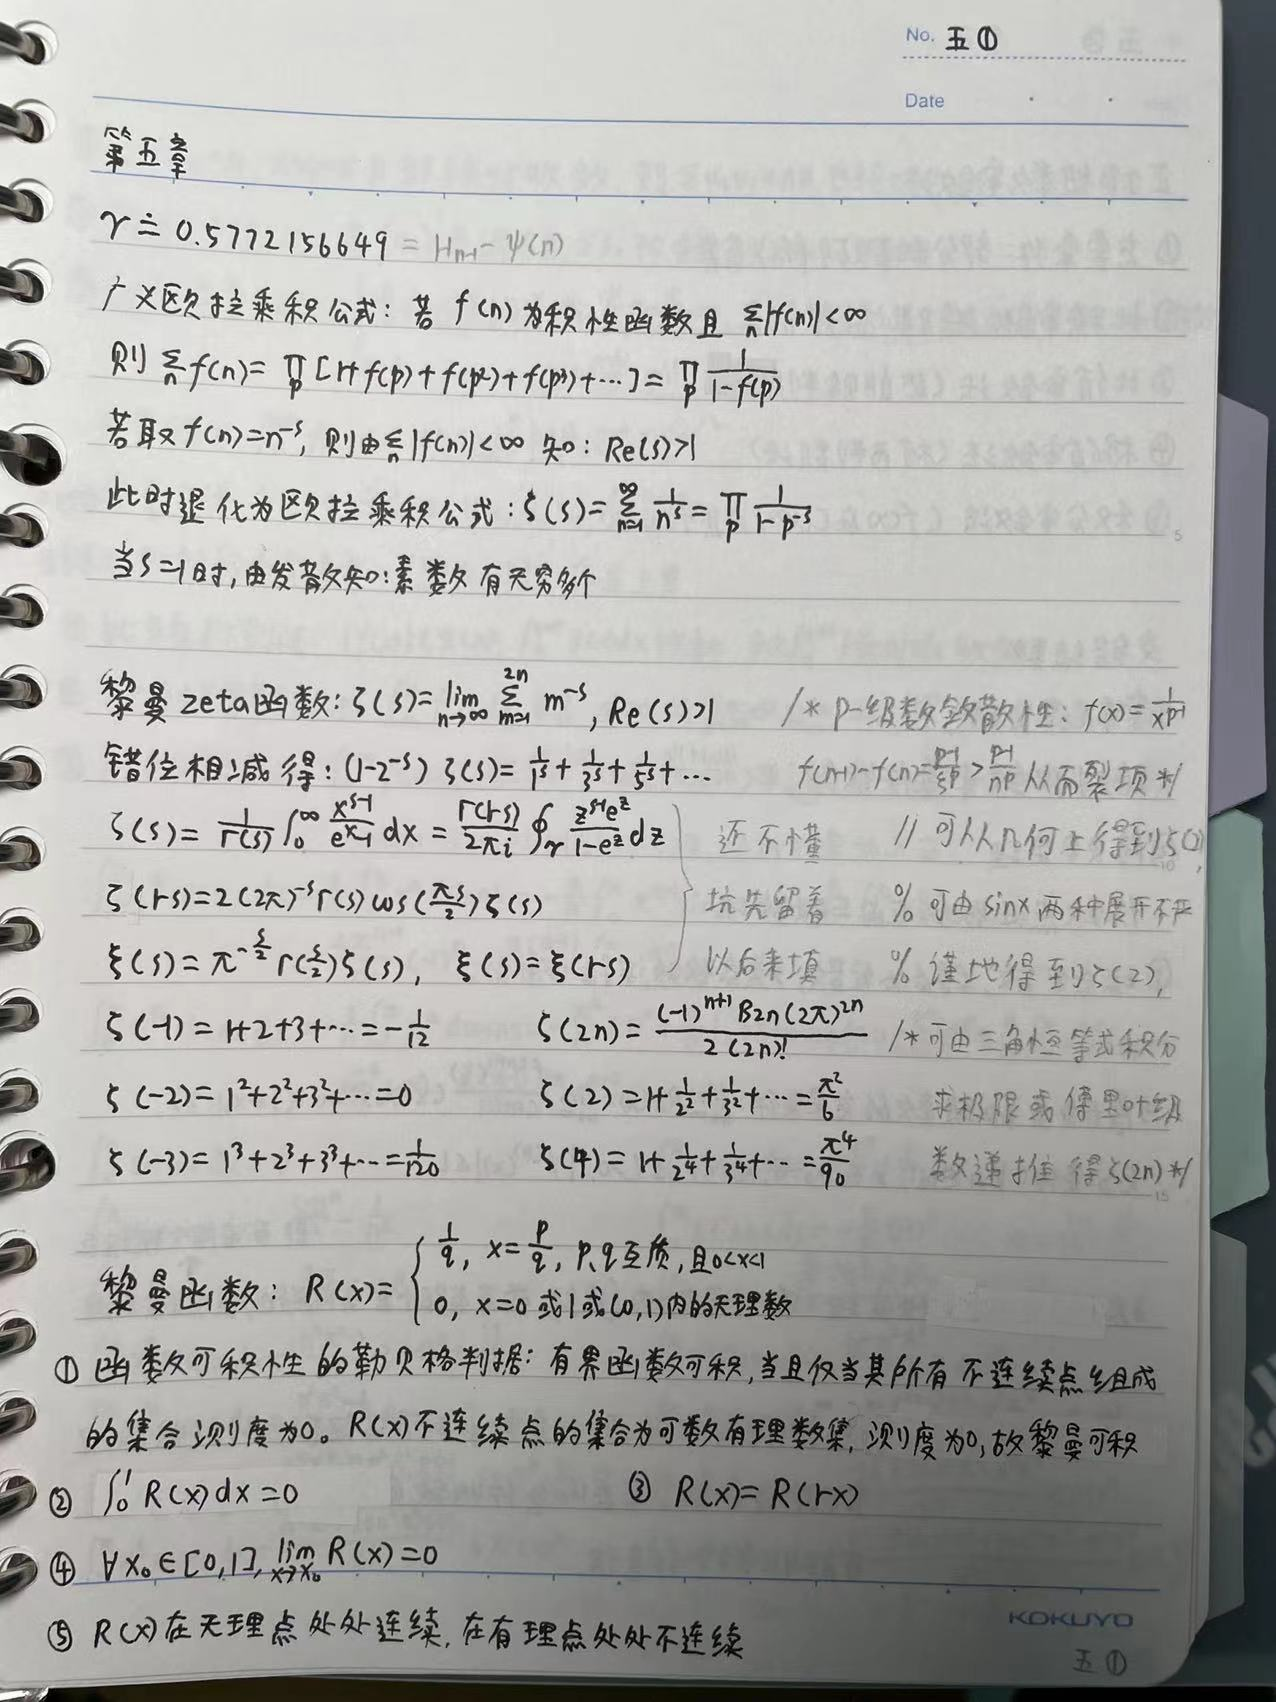 No. 五①
Date
第五章
γ ≐ 0.5772156649 = Hn-1 - ψ(n)
广义欧拉乘积公式: 若 f(n) 为积性函数且 Σn|f(n)| < ∞
则 Σn f(n) = Πp [1+f(p)+f(p²)+f(p³)+⋯] = Πp 1/(1-f(p))
若取 f(n)=n^-s, 则由 Σn|f(n)|<∞ 知: Re(s)>1
此时退化为欧拉乘积公式: ζ(s) = Σ(n=1→∞) 1/n^s = Πp 1/(1-p^-s)
当s=1时,由发散知:素数有无穷多个
黎曼zeta函数: ζ(s) = lim(n→∞) Σ(m=1→2n) m^-s, Re(s)>1 /* p-级数敛散性: f(x) = 1/x^(p-1)
错位相减得: (1-2^-s) ζ(s) = 1/1^s + 1/3^s + 1/5^s + ⋯ f(n+1)-f(n) = (p-1)/ξ^p > (p-1)/n^p 从而裂项 */
ζ(s) = 1/Γ(s) ∫0^∞ x^(s-1)/(e^x-1) dx = Γ(1-s)/2πi ∮γ z^(s-1)e^z/(1-e^z) dz 还不懂 // 可从几何上得到ζ(2),
ζ(1-s) = 2(2π)^-s Γ(s) cos(πs/2) ζ(s) 坑先留着 % 可由 sinx 两种展开不严
ξ(s) = π^(-s/2) Γ(s/2) ζ(s), ξ(s) = ξ(1-s) 以后来填 % 谨地得到ζ(2),
ζ(-1) = 1+2+3+⋯ = -1/12 ζ(2n) = (-1)^(n+1) B2n (2π)^2n / 2(2n)! /* 可由三角恒等式积分
ζ(-2) = 1²+2²+3²+⋯ = 0 ζ(2) = 1+1/2²+1/3²+⋯ = π²/6 求极限或傅里叶级
ζ(-3) = 1³+2³+3³+⋯ = 1/120 ζ(4) = 1+1/2⁴+1/3⁴+⋯ = π⁴/90 数递推得ζ(2n) */
黎曼函数: R(x) = { 1/q, x = p/q, p,q互质,且0<x<1
0, x=0 或1或(0,1)内的无理数
① 函数可积性的勒贝格判据: 有界函数可积,当且仅当其所有不连续点组成
的集合测度为0。R(x)不连续点的集合为可数有理数集,测度为0,故黎曼可积
② ∫0^1 R(x)dx = 0 ③ R(x) = R(1-x)
④ ∀x₀∈[0,1], lim(x→x₀) R(x) = 0
⑤ R(x)在无理点处处连续,在有理点处处不连续
KOKUYO
五①